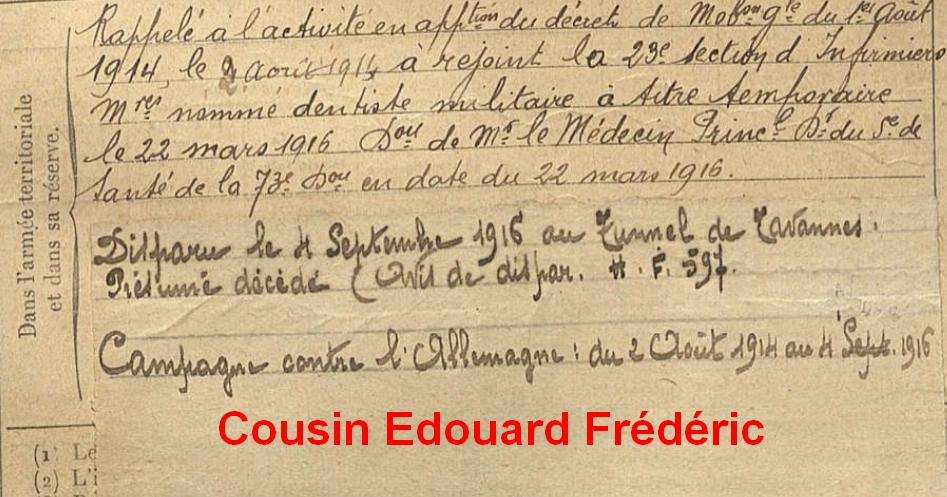 Rappelé à l'activité en appᵗⁱᵒⁿ du décret de Mobᵒⁿ gˡᵉ du 1ᵉʳ Août
1914, le 2 août 1914 à rejoint la 23e section d'Infirmiers
Mʳᵉˢ nommé dentiste militaire à titre temporaire
le 22 mars 1916 Dᵒⁿ de Mʳ le Médecin Princˡ Dʳ du Sᶜᵉ de
Santé de la 73ᵉ Dᵒⁿ en date du 22 mars 1916.
Disparu le 4 Septembre 1916 au Tunnel de Tavannes.
Présumé décédé (Avis de dispar. H. F. 597.
Campagne contre l'Allemagne : du 2 Août 1914 au 4 Sept. 1916
Dans l'armée territoriale
et dans sa réserve.
Cousin Edouard Frédéric
(1) Le
(2) L'i